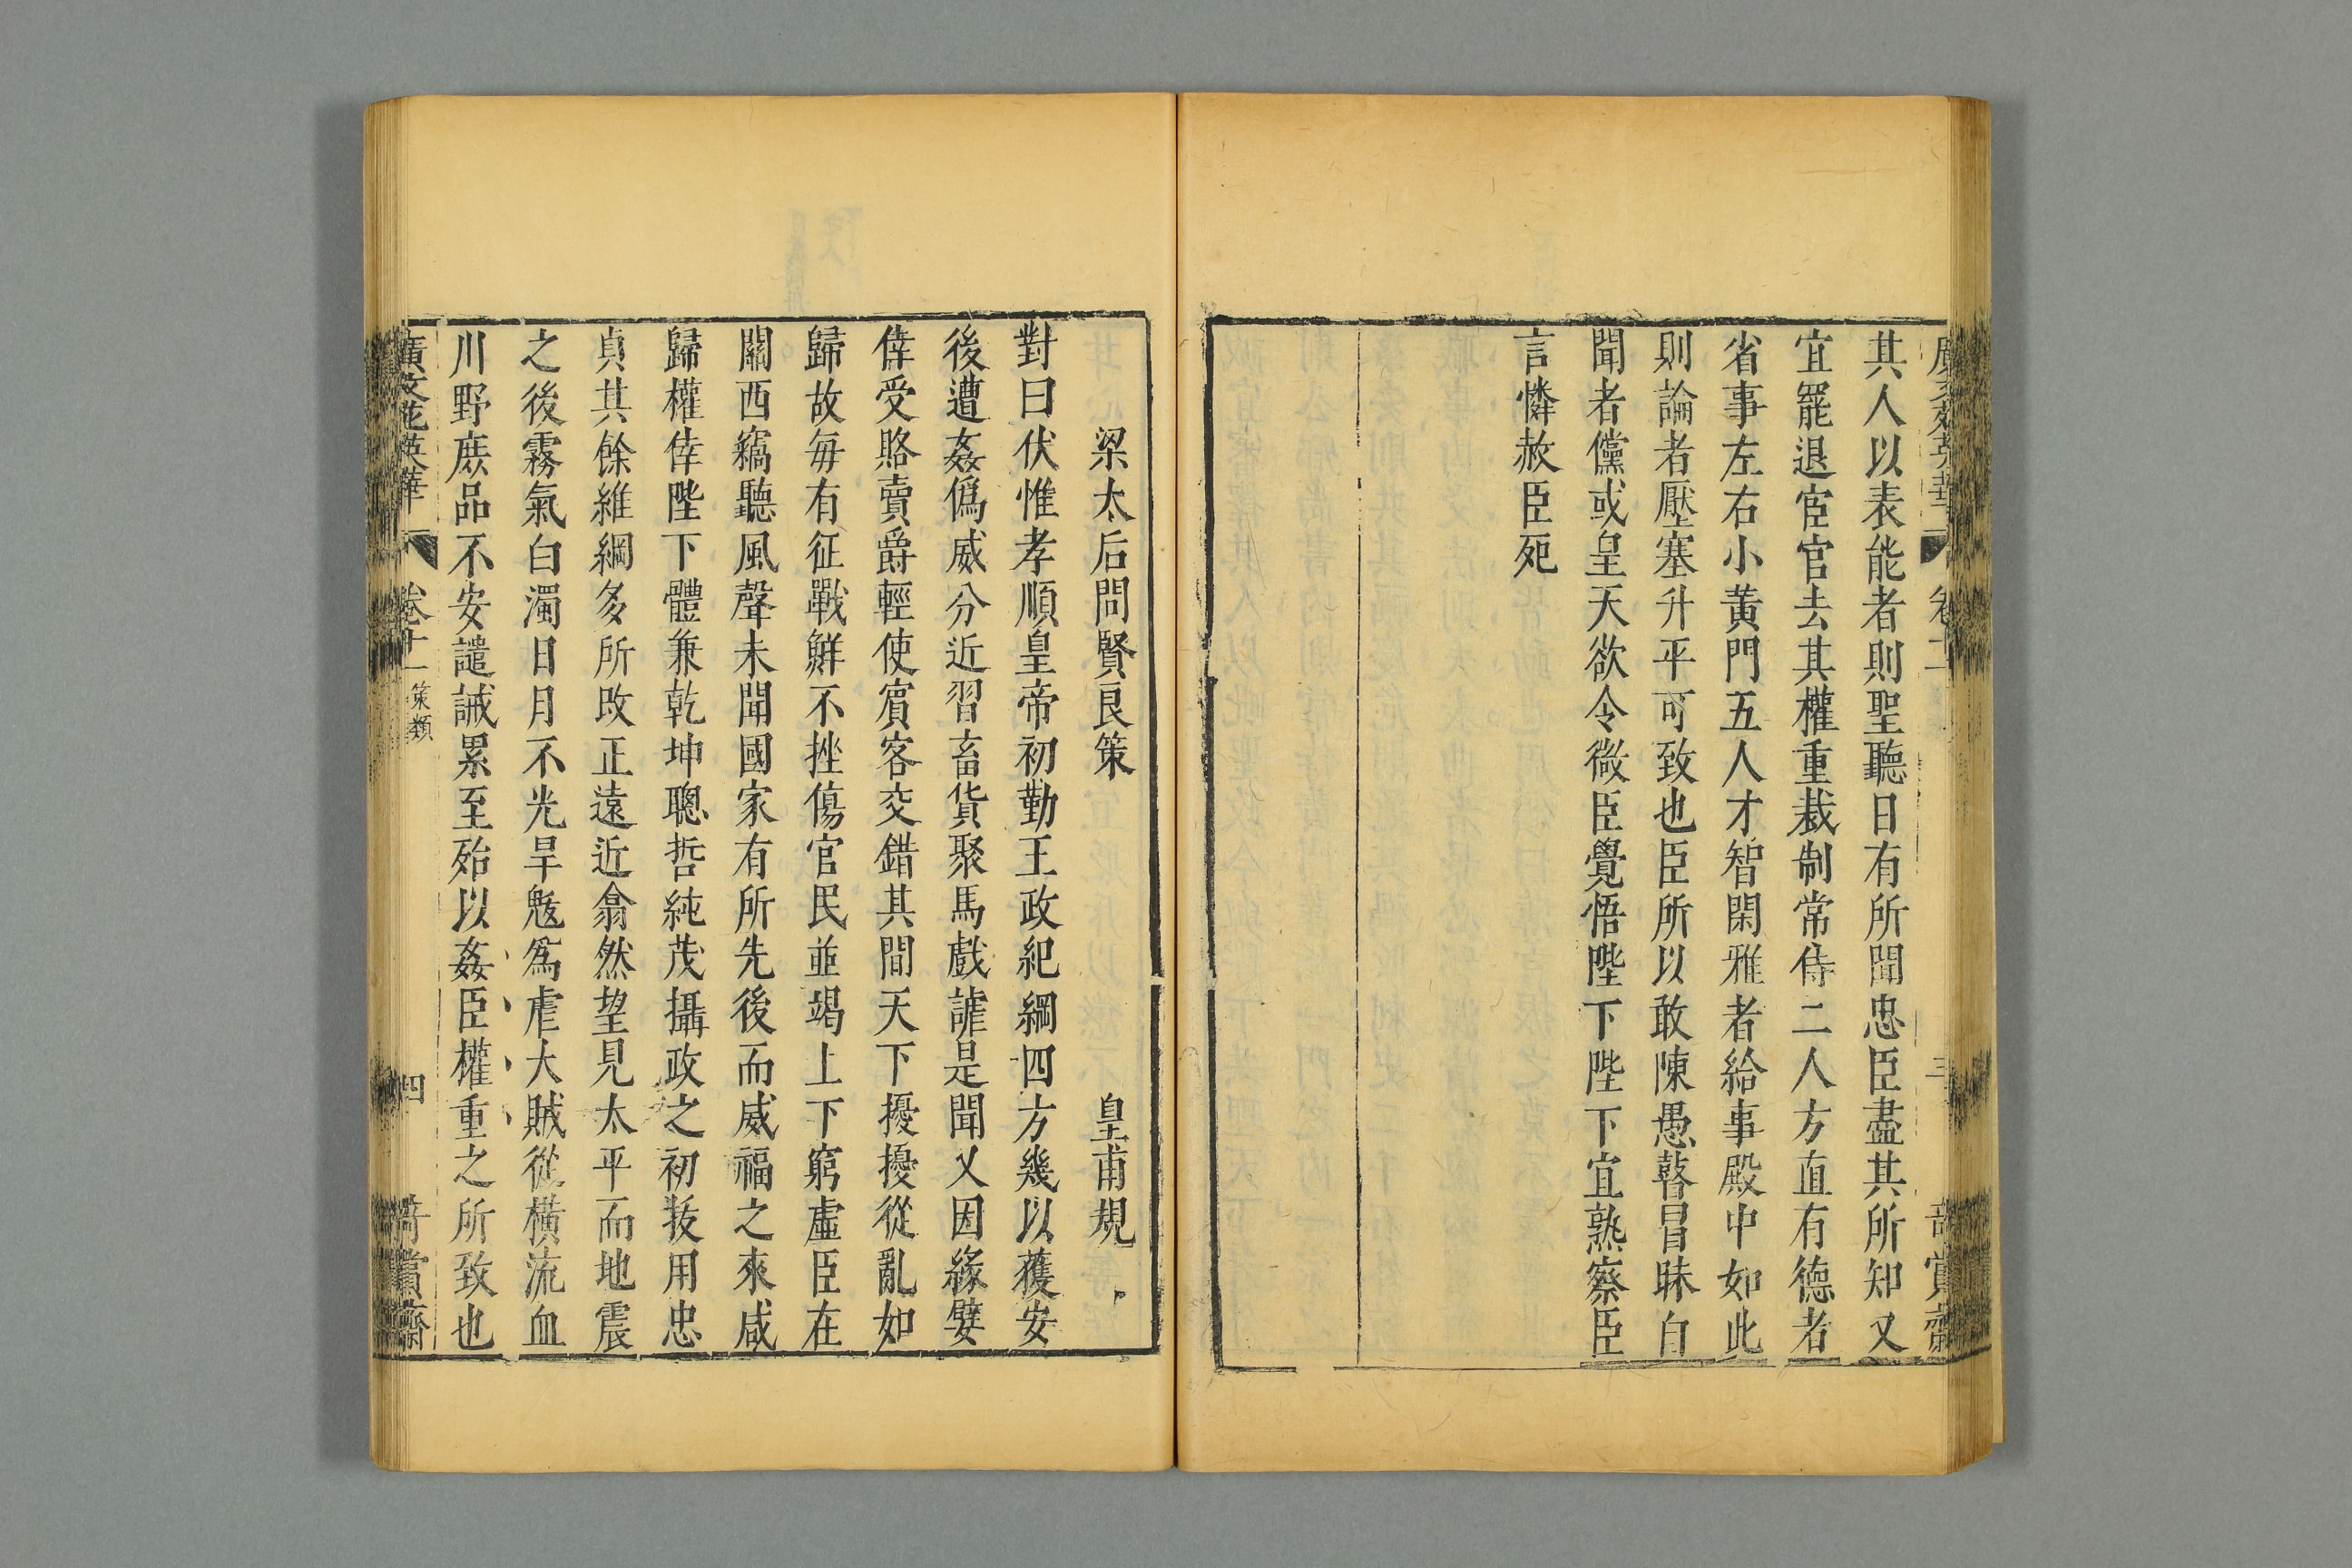 其人以表能者則聖聽日有所聞忠臣盡其所知又
宜罷退宦官去其權重裁制常侍二人方直有德者
省事左右小黃門五人才智閑雅者給事殿中如此
則論者壓塞升平可致也臣所以敢陳愚瞽冒昧自
聞者儻或皇天欲令微臣覺悟陛下陛下宜熟察臣
言憐赦臣死
梁太后問賢良策 皇甫規
對曰伏惟孝順皇帝初勤王政紀綱四方幾以獲安
後遭姦僞威分近習畜貨聚馬戲謔是聞又因緣嬖
倖受賂賣爵輕使賓客交錯其間天下擾擾從亂如
歸故每有征戰鮮不挫傷官民並竭上下窮虛臣在
關西竊聽風聲未聞國家有所先後而威福之來咸
歸權倖陛下體兼乾坤聰哲純茂攝政之初拔用忠
貞其餘維綱多所攺正遠近翕然望見太平而地震
之後霧氣白濁日月不光旱魃爲虐大賊從橫流血
川野庶品不安譴誡累至殆以姦臣權重之所致也
廣文苑英華 卷十一 策類 四 奇賞齋